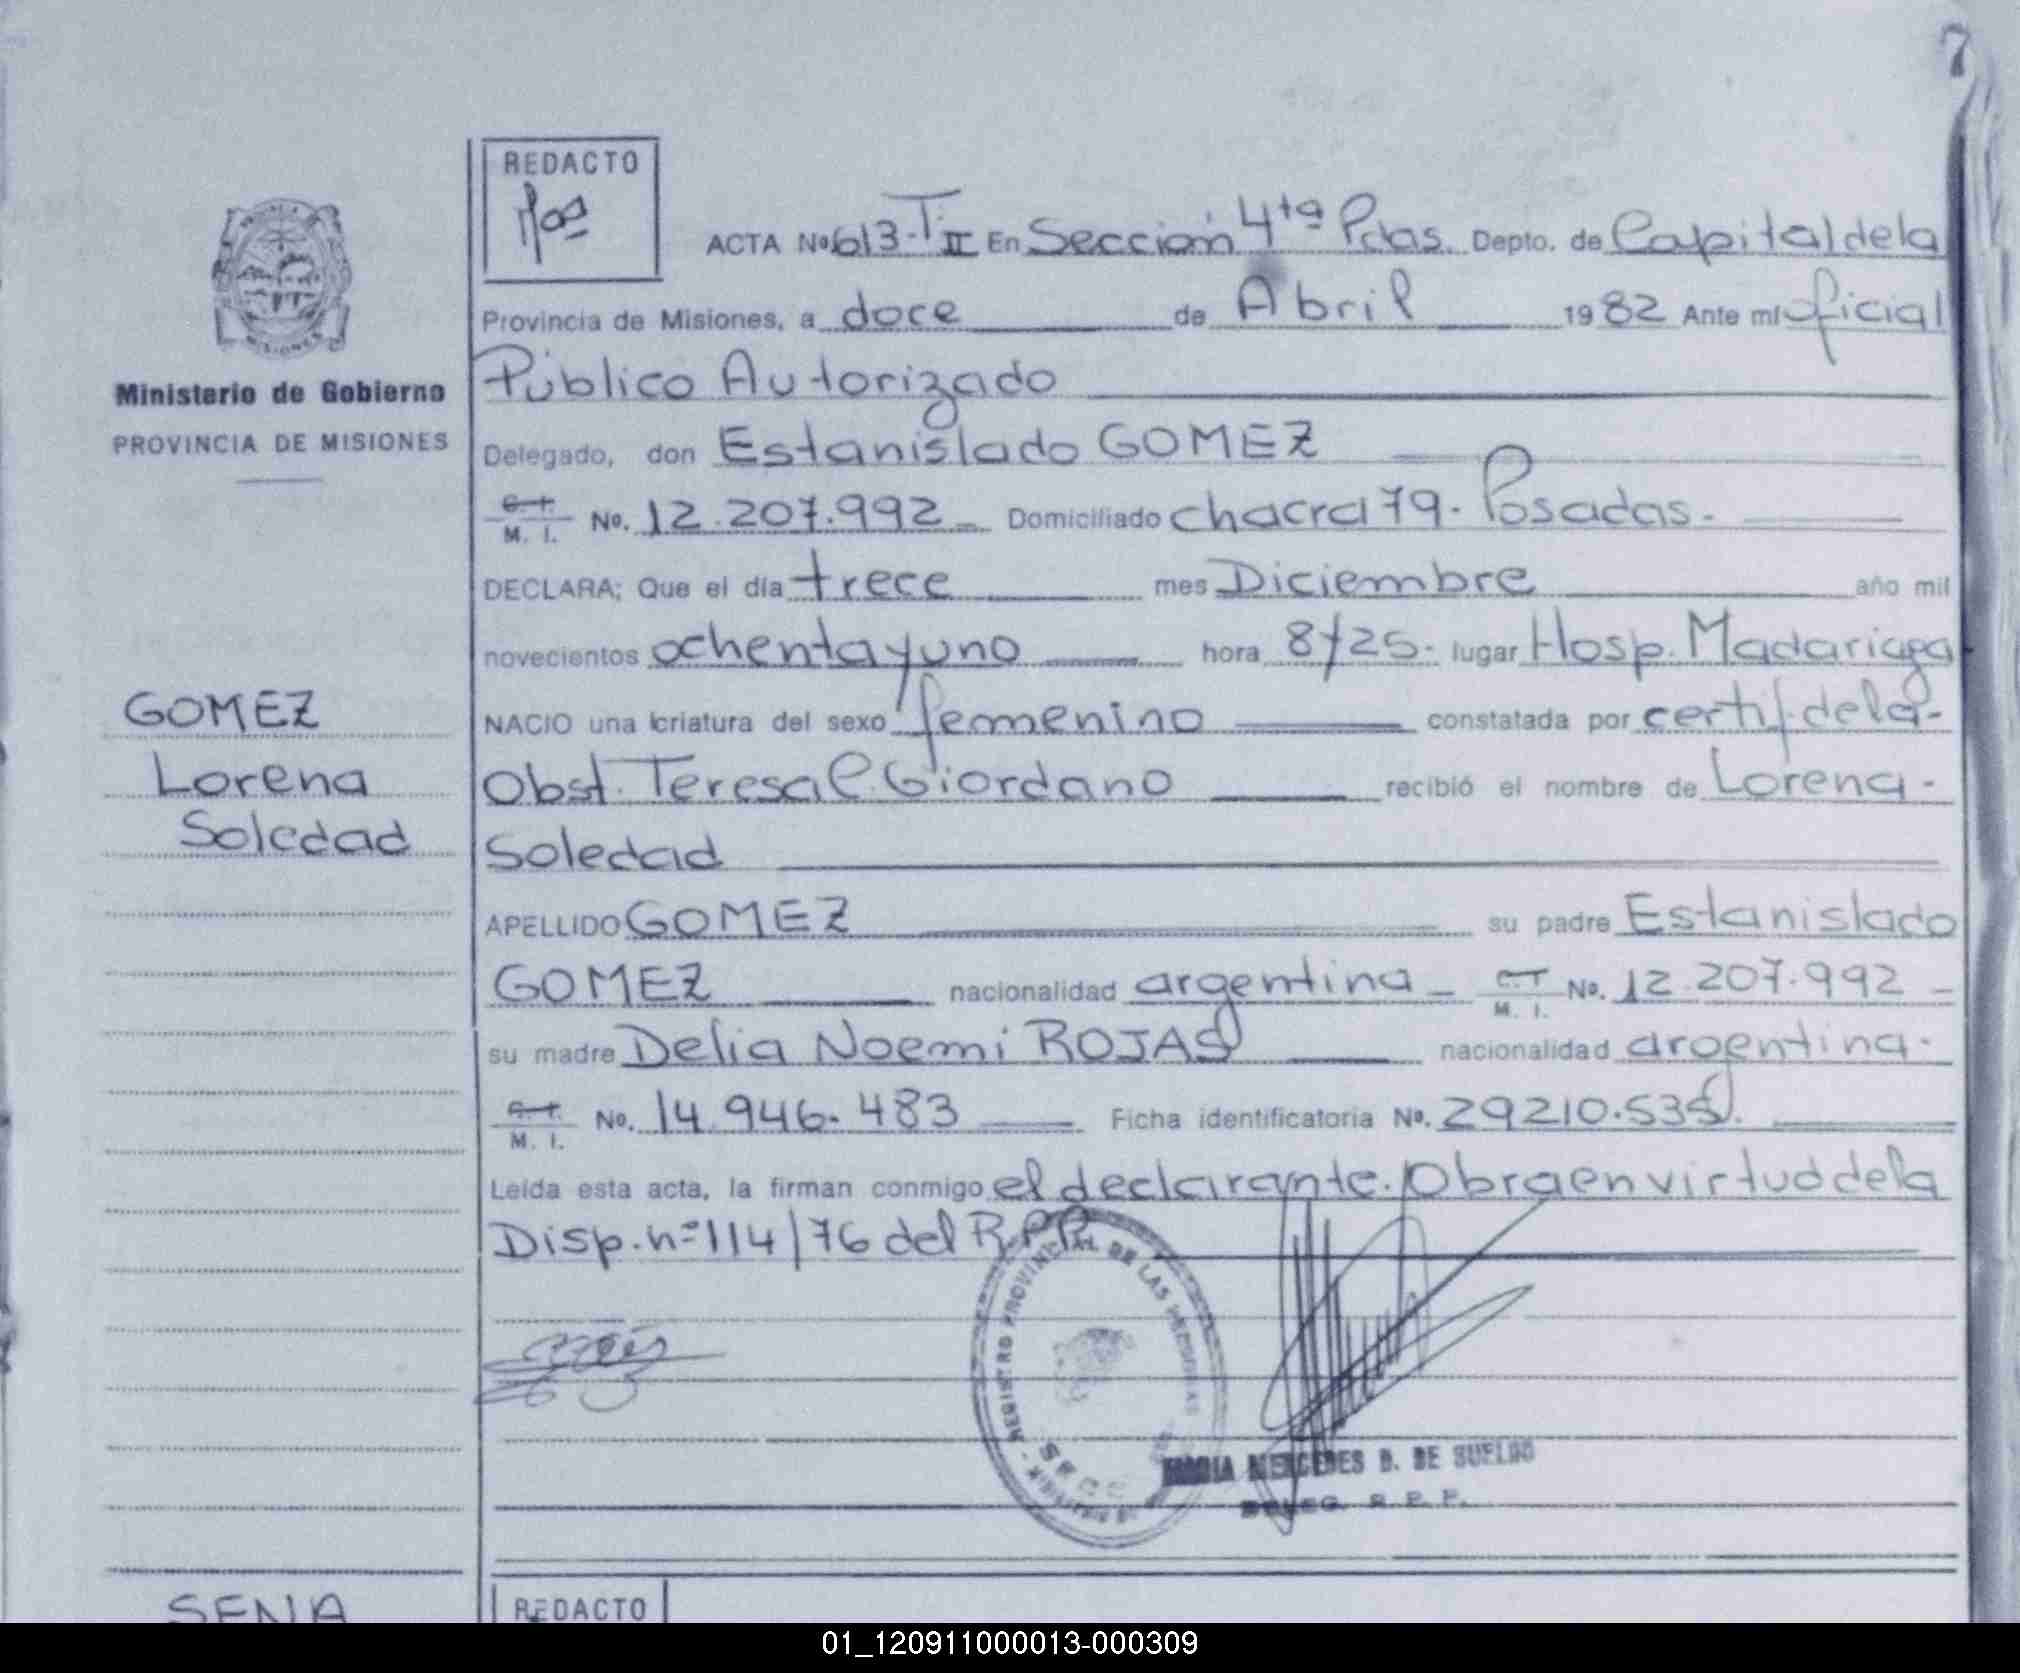 7
REDACTO
ACTA No 613-T II En Sección 4ta Pdas. Depto. de Capital de la
Provincia de Misiones, a doce de Abril 1982 Ante mí oficial
Público Autorizado
Ministerio de Gobierno
PROVINCIA DE MISIONES
Delegado, don Estanislado GOMEZ
C. I. M. I. No. 12.207.992 Domiciliado chacra 79. Posadas.
DECLARA; Que el día trece mes Diciembre año mil
novecientos ochenta y uno hora 8/25. lugar Hosp. Madariaga
GOMEZ
Lorena
Soledad
NACIO una criatura del sexo femenino constatada por certif. de la
Obst. Teresa C. Giordano recibió el nombre de Lorena
Soledad
APELLIDO GOMEZ su padre Estanislado
GOMEZ nacionalidad argentina C. I. M. I. No. 12.207.992
su madre Delia Noemi ROJAS nacionalidad argentina.
C. I. M. I. No. 14.946.483 Ficha identificatoria No. 29210.535.
Leída esta acta, la firman conmigo el declarante. Obra en virtud de la
Disp. nº 114/76 del R.P.P.
REGISTRO PROVINCIAL DE LAS PERSONAS
MERCEDES B. DE SUELDO
DELEG. R. P. P.
SENA
REDACTO
01_120911000013-000309